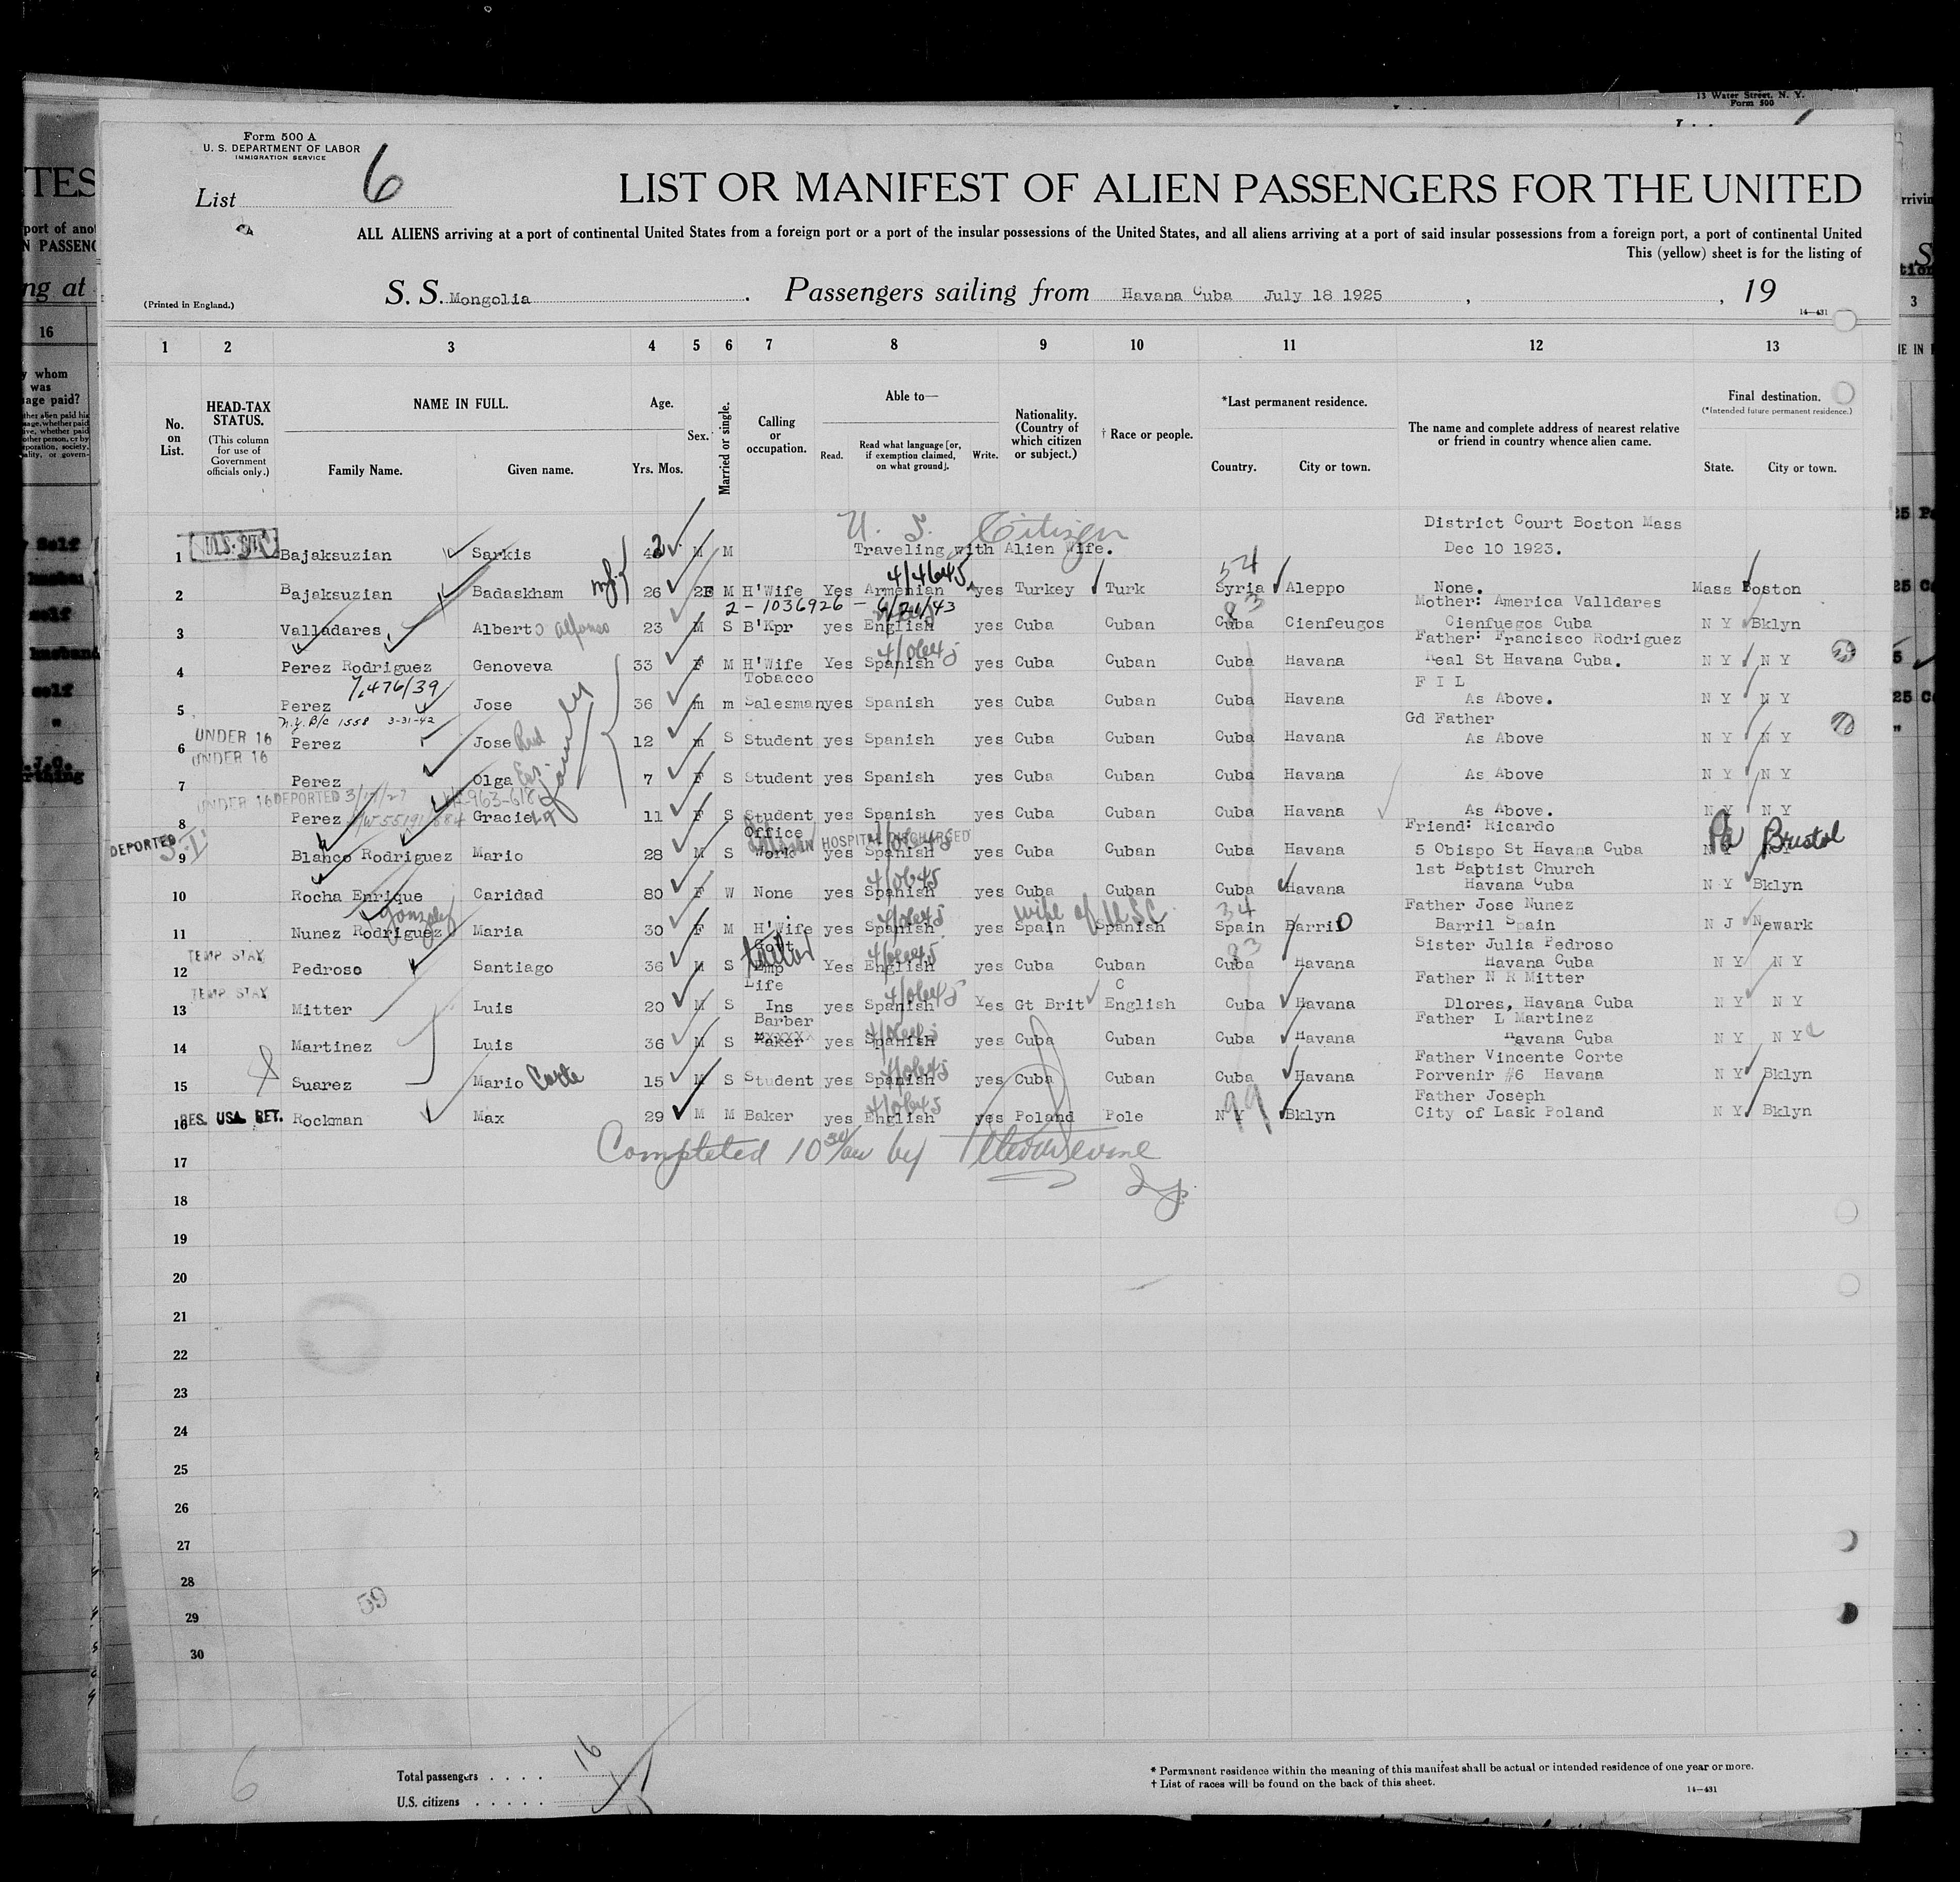 13 Water Street, N. Y.
Form 500
Form 500 A
U. S. DEPARTMENT OF LABOR
IMMIGRATION SERVICE
List 6
LIST OR MANIFEST OF ALIEN PASSENGERS FOR THE UNITED
ALL ALIENS arriving at a port of continental United States from a foreign port or a port of the insular possessions of the United States, and all aliens arriving at a port of said insular possessions from a foreign port, a port of continental United
This (yellow) sheet is for the listing of
(Printed in England.)
S. S. Mongolia . Passengers sailing from Havana Cuba July 18 1925 , , 19
14—431
1 2 3 4 5 6 7 8 9 10 11 12 13
No. on List.
HEAD-TAX STATUS.
(This column for use of Government officials only.)
NAME IN FULL.
Family Name. Given name.
Age.
Yrs. Mos.
Sex.
Married or single.
Calling or occupation.
Able to—
Read. Read what language [or, if exemption claimed, on what ground]. Write.
Nationality. (Country of which citizen or subject.)
† Race or people.
*Last permanent residence.
Country. City or town.
The name and complete address of nearest relative or friend in country whence alien came.
Final destination.
(*Intended future permanent residence.)
State. City or town.
U. S. Citizen
District Court Boston Mass
1 Bajaksuzian Sarkis 42 M M Traveling with Alien Wife. Dec 10 1923.
54
2 Bajaksuzian Badaskham 26 F M H'Wife Yes Armenian yes Turkey Turk Syria Aleppo None. Mass Boston
2 - 1036926 - 6/21/43 83 Mother: America Valldares
3 Valladares Alberto Alfonso 23 M S B'Kpr yes English yes Cuba Cuban Cuba Cienfeugos Cienfuegos Cuba N Y Bklyn
Father: Francisco Rodriguez
4 Perez Rodriguez Genoveva 33 F M H'Wife Yes Spanish yes Cuba Cuban Cuba Havana Real St Havana Cuba. N Y N Y
Tobacco F I L
5 Perez Jose 36 m m Salesman yes Spanish yes Cuba Cuban Cuba Havana As Above. N Y N Y
N.Y. B/c 1558 3-31-42 Gd Father
UNDER 16
6 Perez Jose 12 m S Student yes Spanish yes Cuba Cuban Cuba Havana As Above N Y N Y
UNDER 16
7 Perez Olga 7 F S Student yes Spanish yes Cuba Cuban Cuba Havana As Above N Y N Y
UNDER 16 DEPORTED
8 Perez Graciela 11 F S Student yes Spanish yes Cuba Cuban Cuba Havana As Above. N Y N Y
DEPORTED Office HOSPITAL DISCHARGED Friend: Ricardo
9 Blanco Rodriguez Mario 28 M S Work yes Spanish yes Cuba Cuban Cuba Havana 5 Obispo St Havana Cuba Pa Bristol
1st Baptist Church
10 Rocha Enrique Caridad 80 F W None yes Spanish yes Cuba Cuban Cuba Havana Havana Cuba N Y Bklyn
Gonzalez wife of USC 34 Father Jose Nunez
11 Nunez Rodriguez Maria 30 F M H'Wife yes Spanish yes Spain Spanish Spain Barrio Barril Spain N J Newark
TEMP. STAY Govt 83 Sister Julia Pedroso
12 Pedroso Santiago 36 M S Emp Yes English yes Cuba Cuban Cuba Havana Havana Cuba N Y N Y
TEMP. STAY Life Father N R Mitter
13 Mitter Luis 20 M S Ins yes Spanish Yes Gt Brit English Cuba Havana Dlores, Havana Cuba N Y N Y
Barber Father L Martinez
14 Martinez Luis 36 M S yes Spanish yes Cuba Cuban Cuba Havana Havana Cuba N Y N Y
Father Vincente Corte
15 Suarez Mario Corte 15 M S Student yes Spanish yes Cuba Cuban Cuba Havana Porvenir #6 Havana N Y Bklyn
99 Father Joseph
RES. USA RET.
16 Rockman Max 29 M M Baker yes English yes Poland Pole N Y Bklyn City of Lask Poland N Y Bklyn
17 Completed 10 by
18
19
20
21
22
23
24
25
26
27
28
29
59
30
6
Total passengers . . . . 16
U.S. citizens . . . . .
* Permanent residence within the meaning of this manifest shall be actual or intended residence of one year or more.
† List of races will be found on the back of this sheet.
14—431